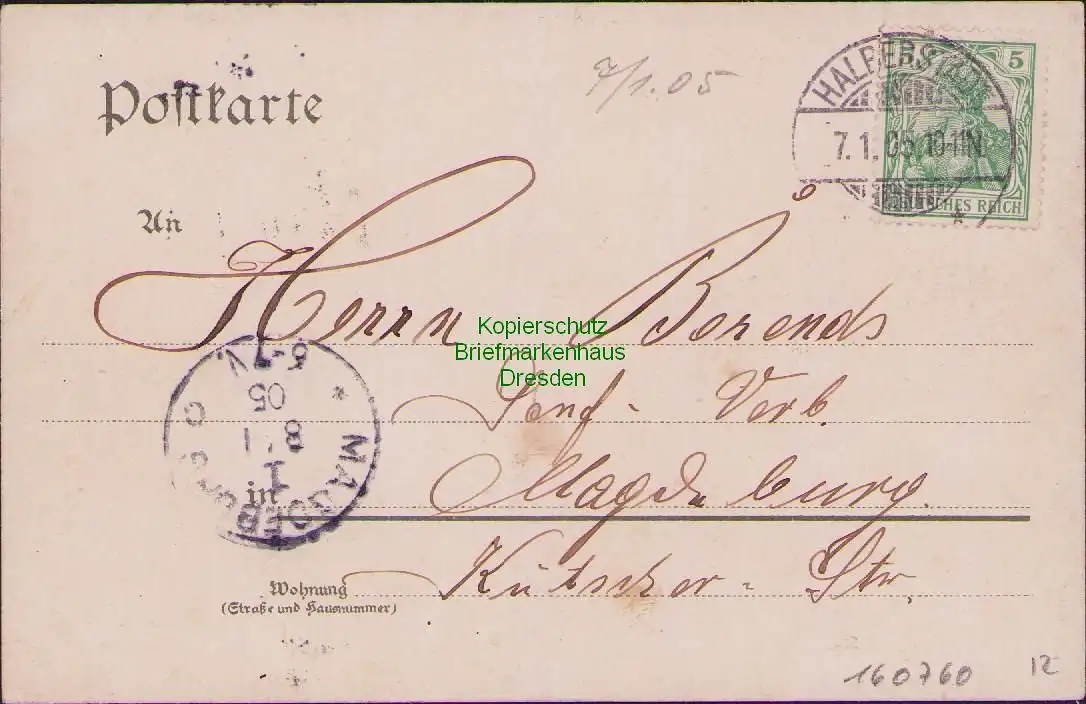 Postkarte
7/1.05
HALBERSTADT
7. 1. 05 10-11N.
5
DEUTSCHES REICH
An
Herrn Berends
Kopierschutz
Briefmarkenhaus
Dresden
Senf- Verb.
in Magdeburg.
MAGDEBURG
8 1
05
Wohnung
(Straße und Hausnummer)
Kutscher-Str.
160760
12